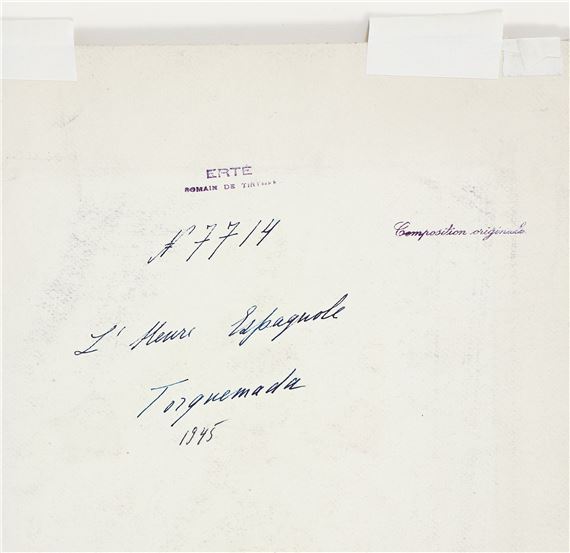 ERTÉ
ROMAIN DE
N° 7714
Composition originale
L'Heure Espagnole
Torquemada
1945